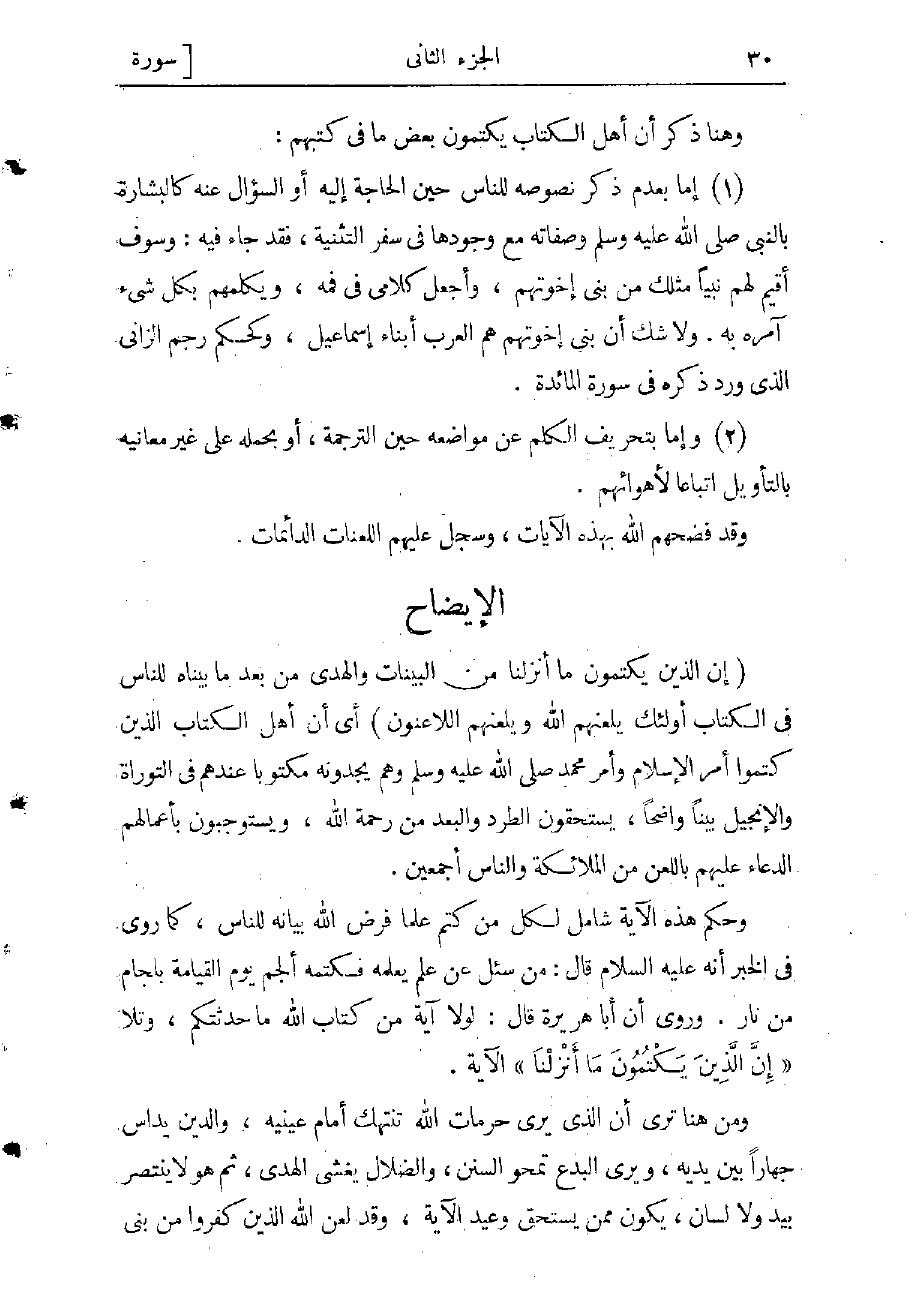 ٣٠ الجزء الثانى [ سورة
وهنا ذكر أن أهل الكتاب يكتمون بعض ما فى كتبهم :
(١) إما بعدم ذكر نصوصه للناس حين الحاجة إليه أو السؤال عنه كالبشارة
بالنبى صلى الله عليه وسلم وصفاته مع وجودها فى سفر التثنية ، فقد جاء فيه : وسوف
أقيم لهم نبياً مثلك من بنى إخوتهم ، وأجعل كلامى فى فمه ، ويكلمهم بكل شىء
آمره به . ولا شك أن بنى إخوتهم هم العرب أبناء إسماعيل ، وكحكم رجم الزانى
الذى ورد ذكره فى سورة المائدة .
(٢) وإما بتحريف الكلم عن مواضعه حين الترجمة ، أو بحمله على غير معانيه
بالتأويل اتباعا لأهوائهم .
وقد فضحهم الله بهذه الآيات ، وسجل عليهم اللعنات الدائمات .
الإيضاح
( إن الذين يكتمون ما أنزلنا من البينات والهدى من بعد ما بيناه للناس
فى الكتاب أولئك يلعنهم الله ويلعنهم اللاعنون ) أى أن أهل الكتاب الذين
كتموا أمر الإسلام وأمر محمد صلى الله عليه وسلم وهم يجدونه مكتوبا عندهم فى التوراة
والإنجيل بيناً واضحاً ، يستحقون الطرد والبعد من رحمة الله ، ويستوجبون بأعمالهم
الدعاء عليهم باللعن من الملائكة والناس أجمعين .
وحكم هذه الآية شامل لكل من كتم علما فرض الله بيانه للناس ، كما روى
فى الخبر أنه عليه السلام قال : من سئل عن علم يعلمه فكتمه ألجم يوم القيامة بلجام
من نار . وروى أن أبا هريرة قال : لولا آية من كتاب الله ما حدثتكم ، وتلا
« إِنَّ الَّذِينَ يَكْتُمُونَ مَا أَنْزَلْنَا » الآية .
ومن هنا ترى أن الذى يرى حرمات الله تنتهك أمام عينيه ، والدين يداس
جهاراً بين يديه ، ويرى البدع تمحو السنن ، والضلال يغشى الهدى ، ثم هو لا ينتصر
بيد ولا لسان ، يكون ممن يستحق وعيد الآية ، وقد لعن الله الذين كفروا من بنى